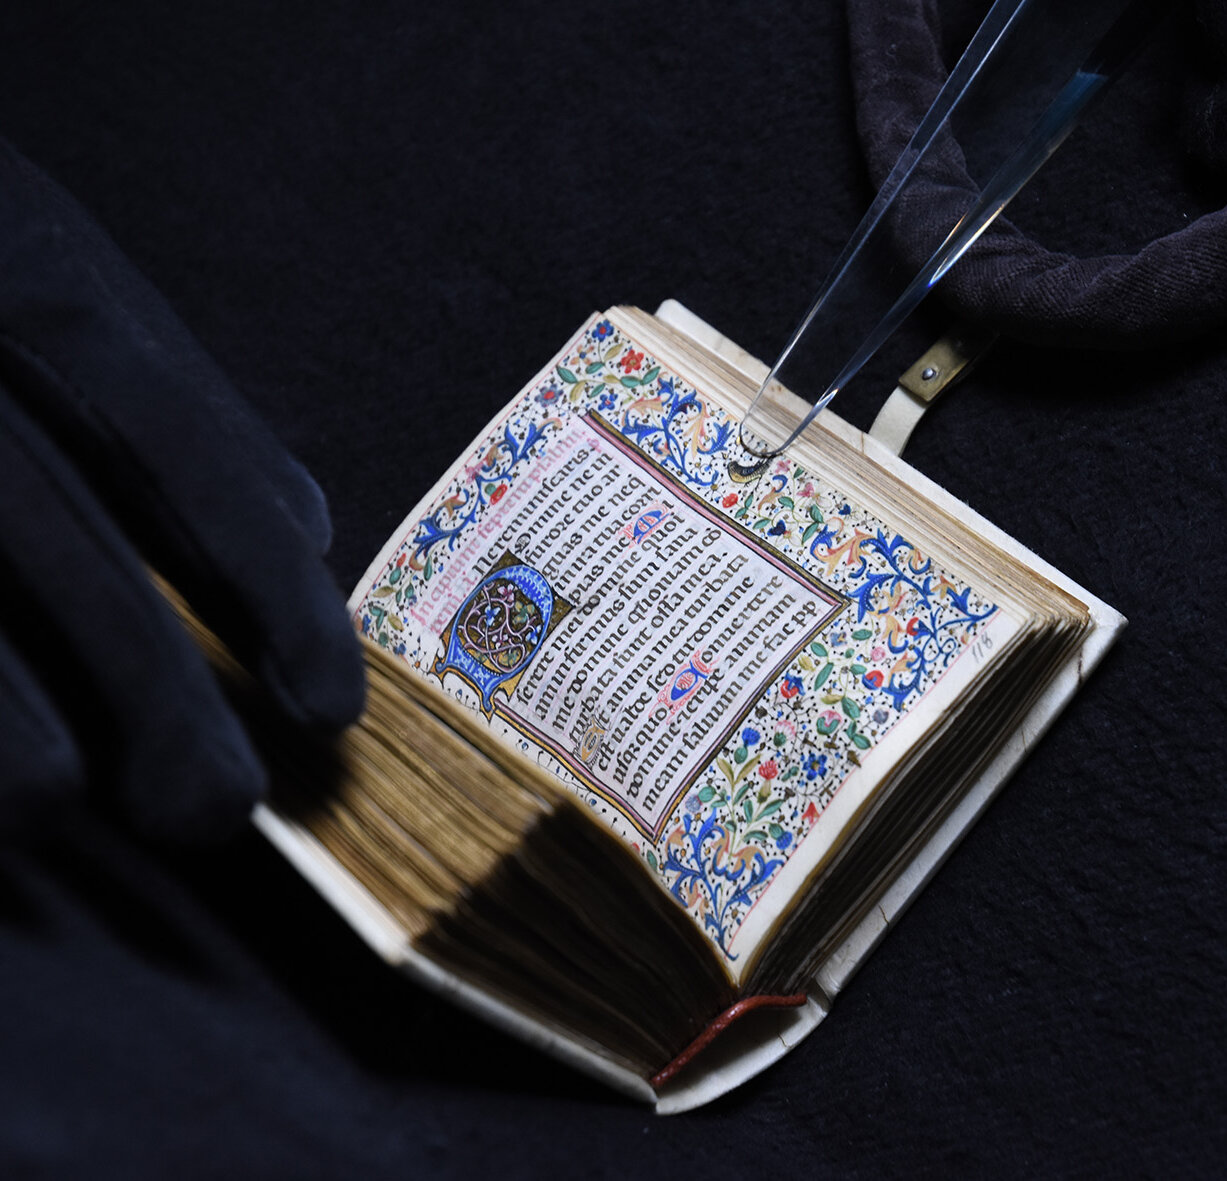 ne reminiscaris
Domine ne in
furore tuo ar
guas me neq
in ira tua cor
ripias me Mi
serere mei domine quo
niam infirmus sum sana
me domine quoniam co
turbata sunt ossa mea
Et anima mea turbata
est valde sed tu domine
usquequo Conuertere
domine et eripe animam
meam saluum me fac pp
118